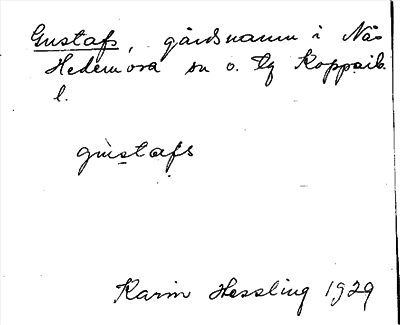 Gustafs, gårdsnamn i Näs
Hedemora sn o. tg Kopparb.
l.
gustafs
Karin Hessling 1929